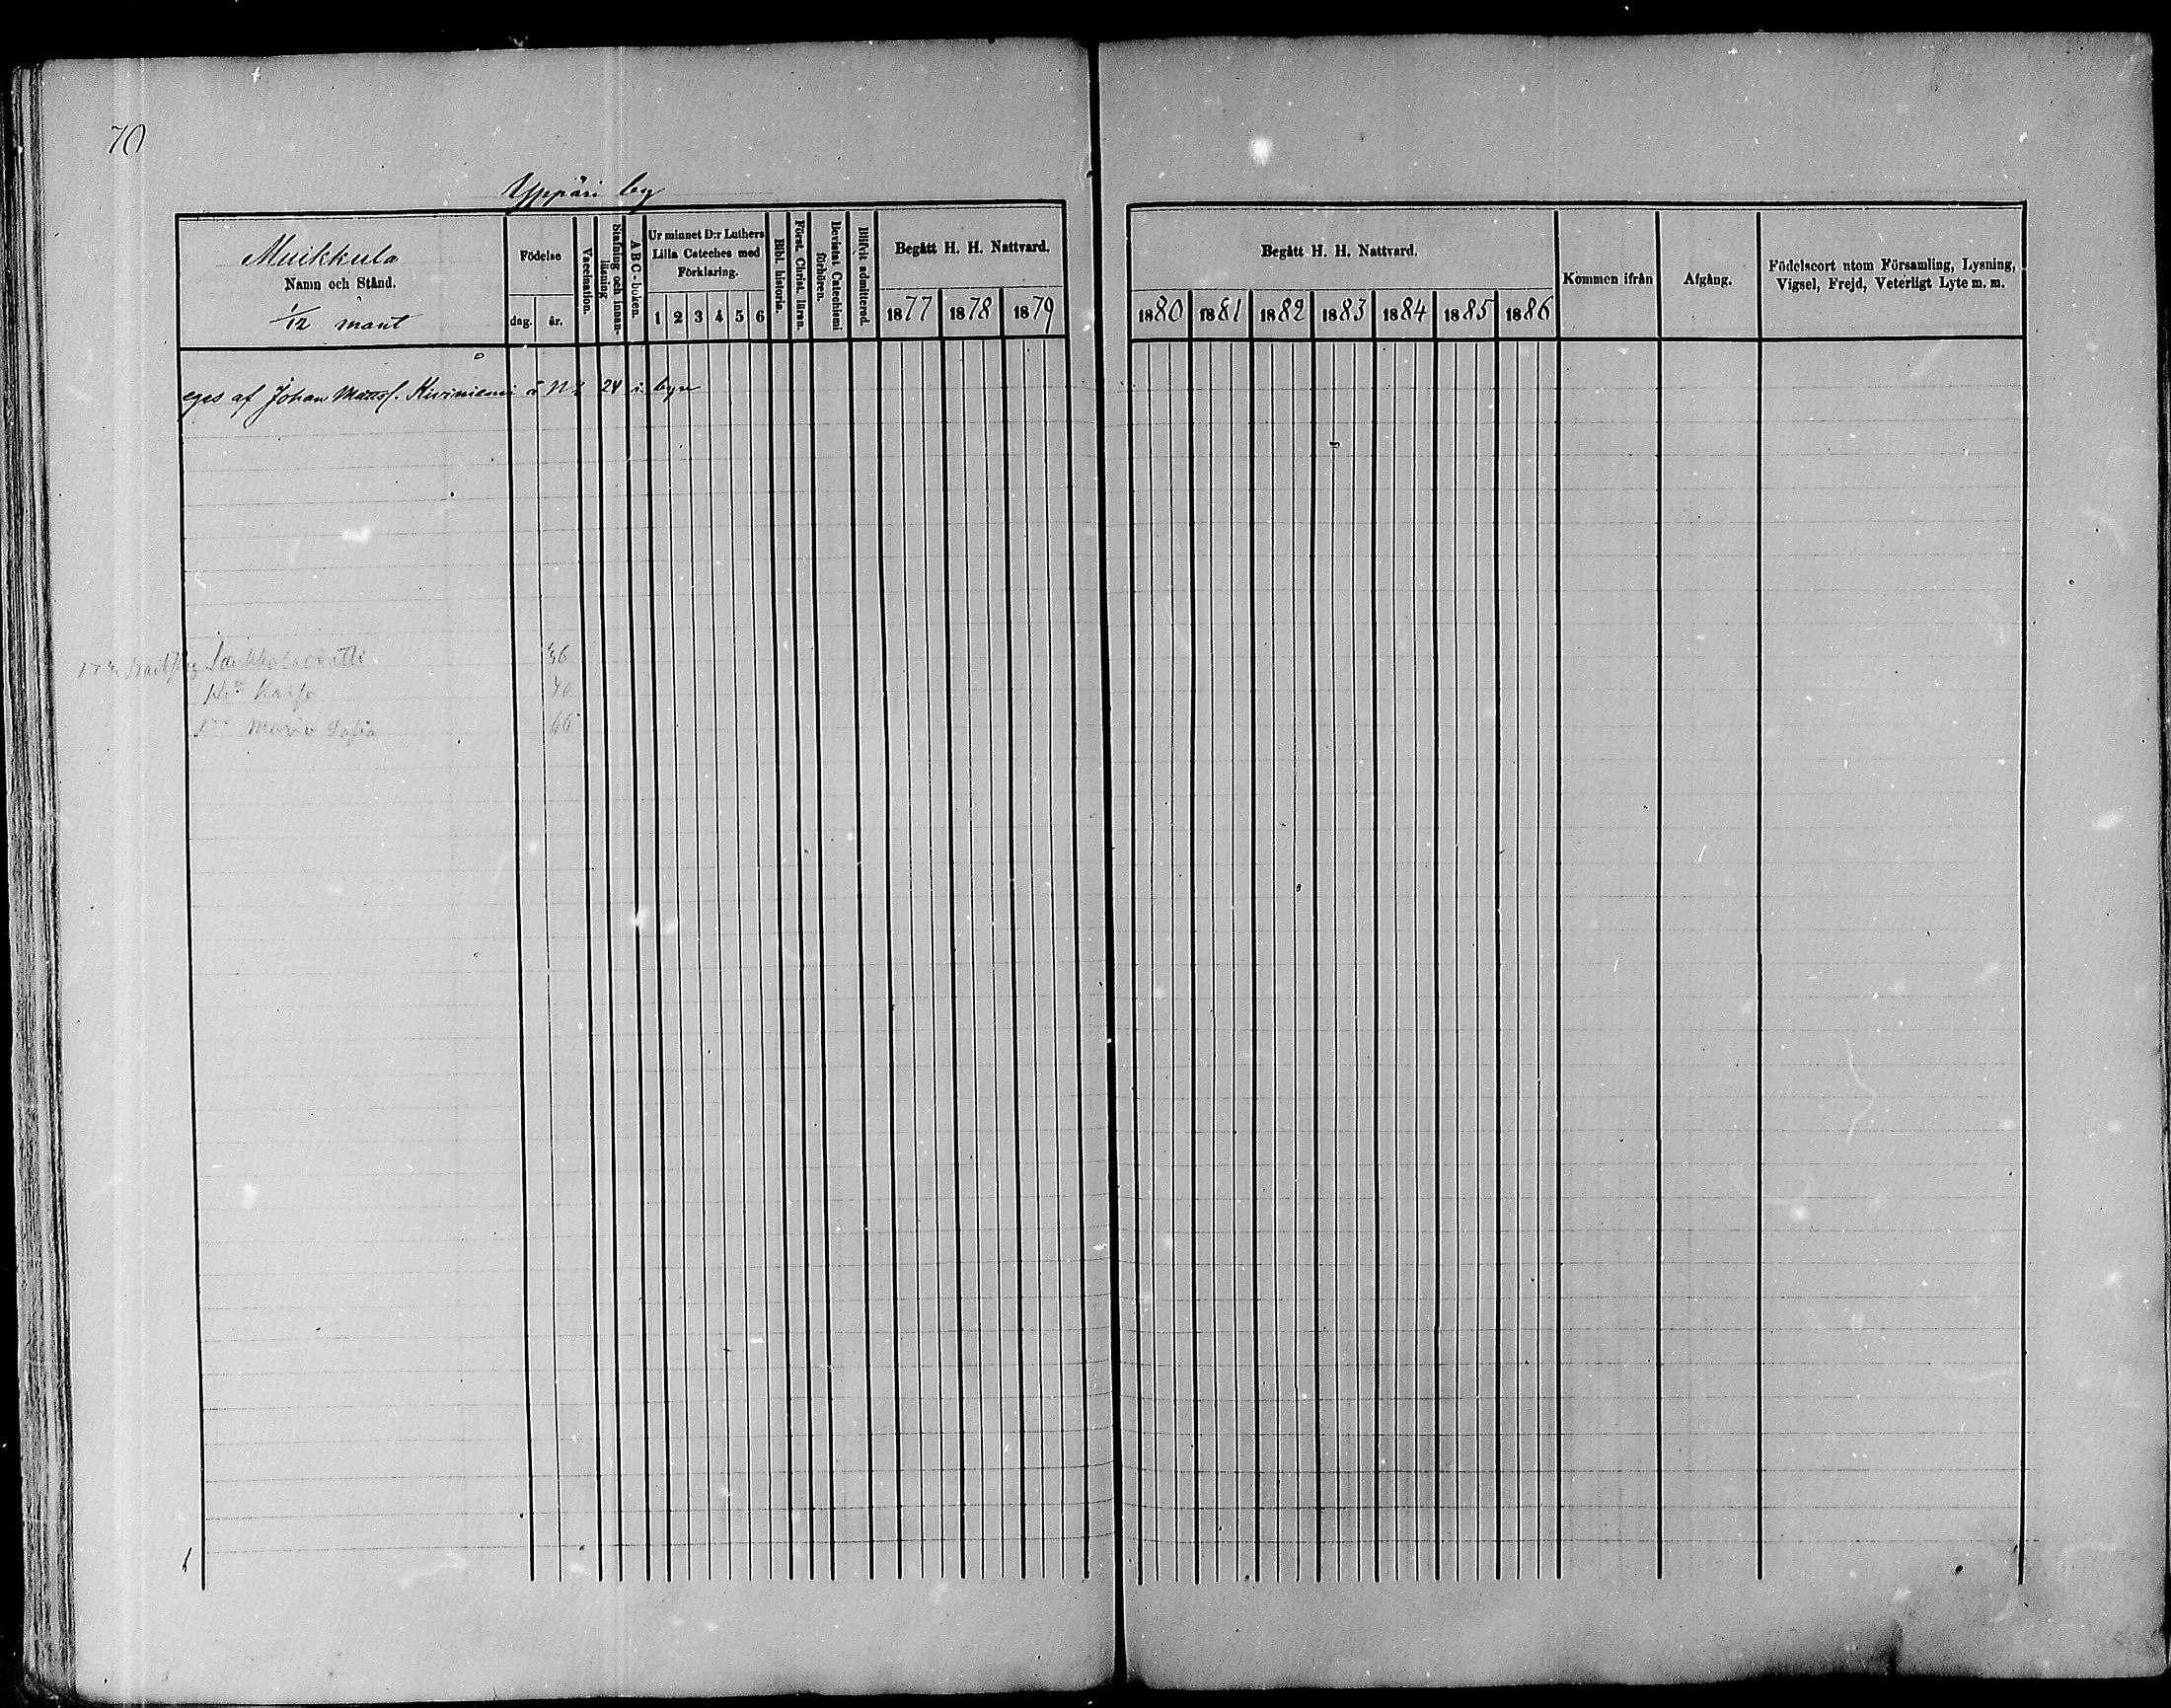 70
Yppäri by
Muikkula
Namn och Stånd.
1/12 mant
Födelse
dag.
år.
Vaccination.
Stafning och innan-
läsning
ABC-boken.
Ur minnet D:r Luthers
Lilla Cateches med
Förklaring.
1 2 3 4 5 6
Bibl. historia.
Först. Christ. läran.
Bevistat Catechismi
förhören.
Blifvit admitterad.
Begått H. H. Nattvard.
1877 1878 1879
Begått H. H. Nattvard.
1880 1881 1882 1883 1884 1885 1886
Kommen ifrån
Afgång.
Födelseort utom Församling, Lysning,
Vigsel, Frejd, Veterligt Lyte m. m.
eges af Johan Matts. Kiviniemi å N: 24 i byn
36
Kaisa 40
Maria Sofia 66